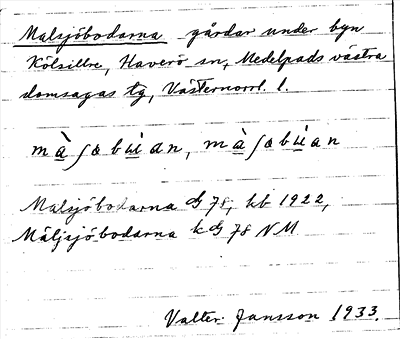 Malsjöbodarna gårdar under byn
Kölsillre, Haverö sn, Medelpads västra
domsagas tg, Västernorrl. l.
màʃæbu̇an, màʃæbu̇an
Malsjöbodarna G 78, kb 1922,
Måljsjöbodarna k G 78 NM.
Valter Jansson 1933.